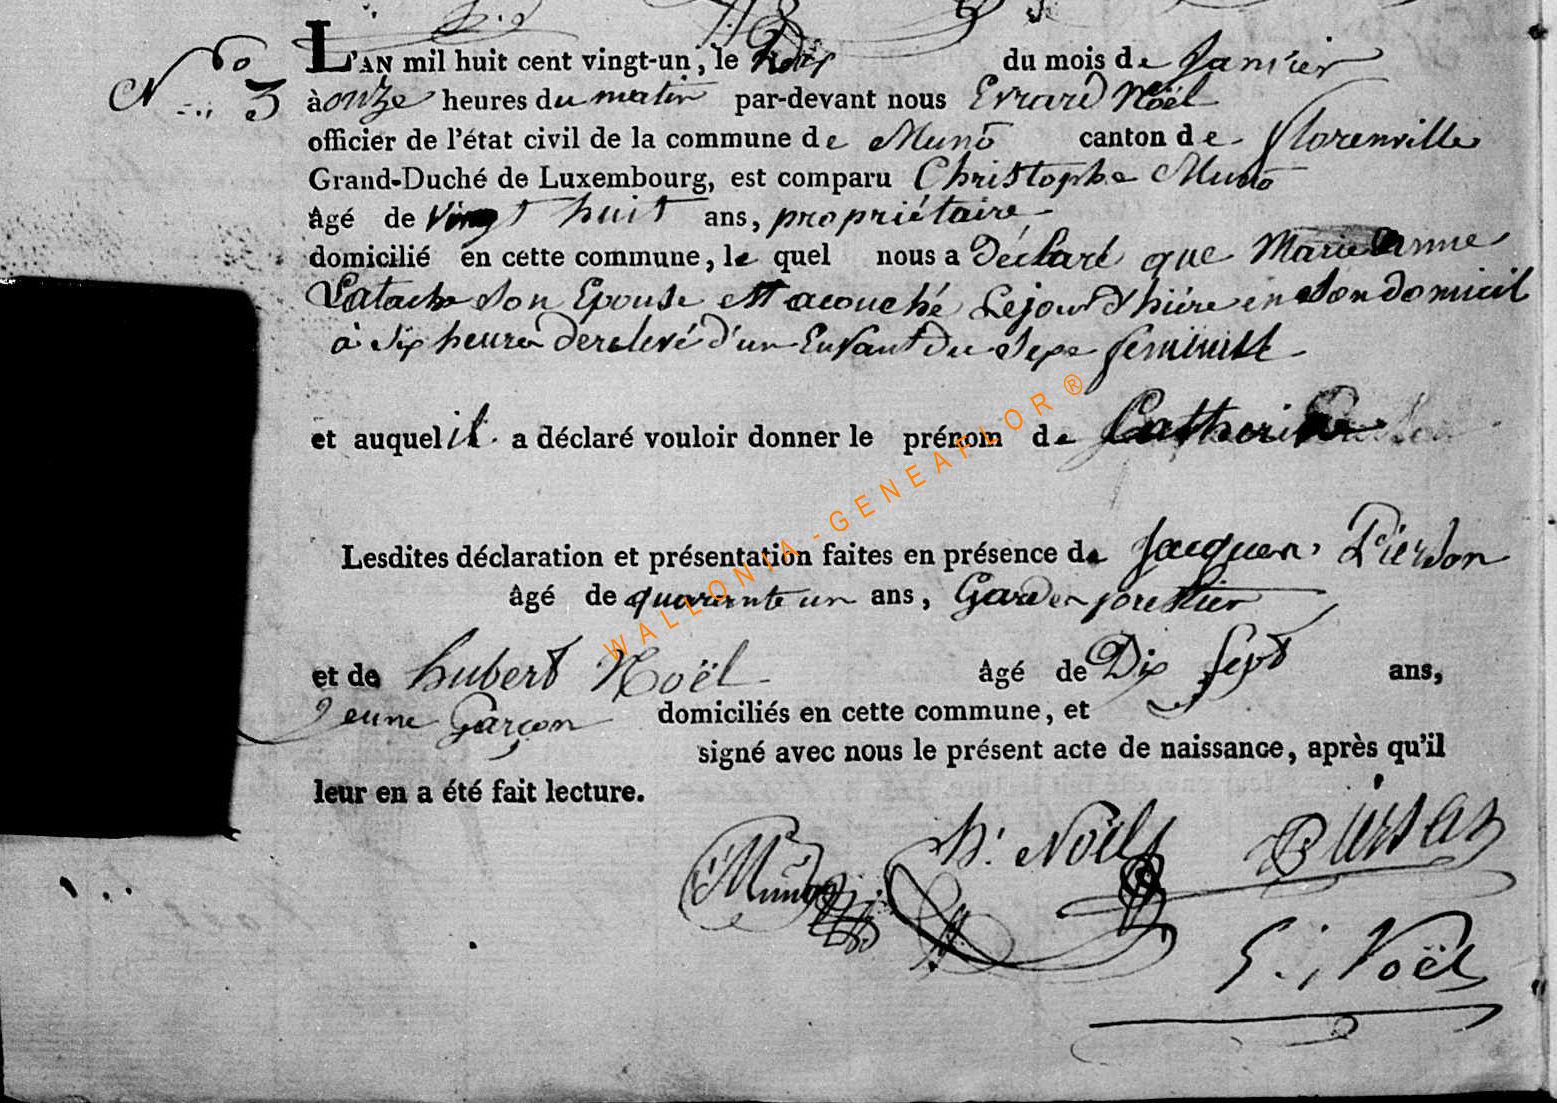 No 3
L'AN mil huit cent vingt-un, le du mois de Janvier
à onze heures du matin par-devant nous Evrard Noël
officier de l'état civil de la commune de Muno canton de florenville
Grand-Duché de Luxembourg, est comparu Christophe Muno
âgé de vingt huit ans, propriétaire
domicilié en cette commune, le quel nous a Déclaré que Marie anne
son Epouse est acouché Le jour d'hière en son domicil
à Six heures derelevé d'un Enfant du Sexe feminill
et auquel il a déclaré vouloir donner le prénom de Catherine
Lesdites déclaration et présentation faites en présence de Jacques Pierson
âgé de quarente un ans, Garde forestier
et de hubert Noël âgé de Dix Sept ans,
Jeune Garçon domiciliés en cette commune, et
signé avec nous le présent acte de naissance, après qu'il
leur en a été fait lecture.
Muno h. Noël Pierson
E. Noël
WALLONIA-GENEAFLOR®